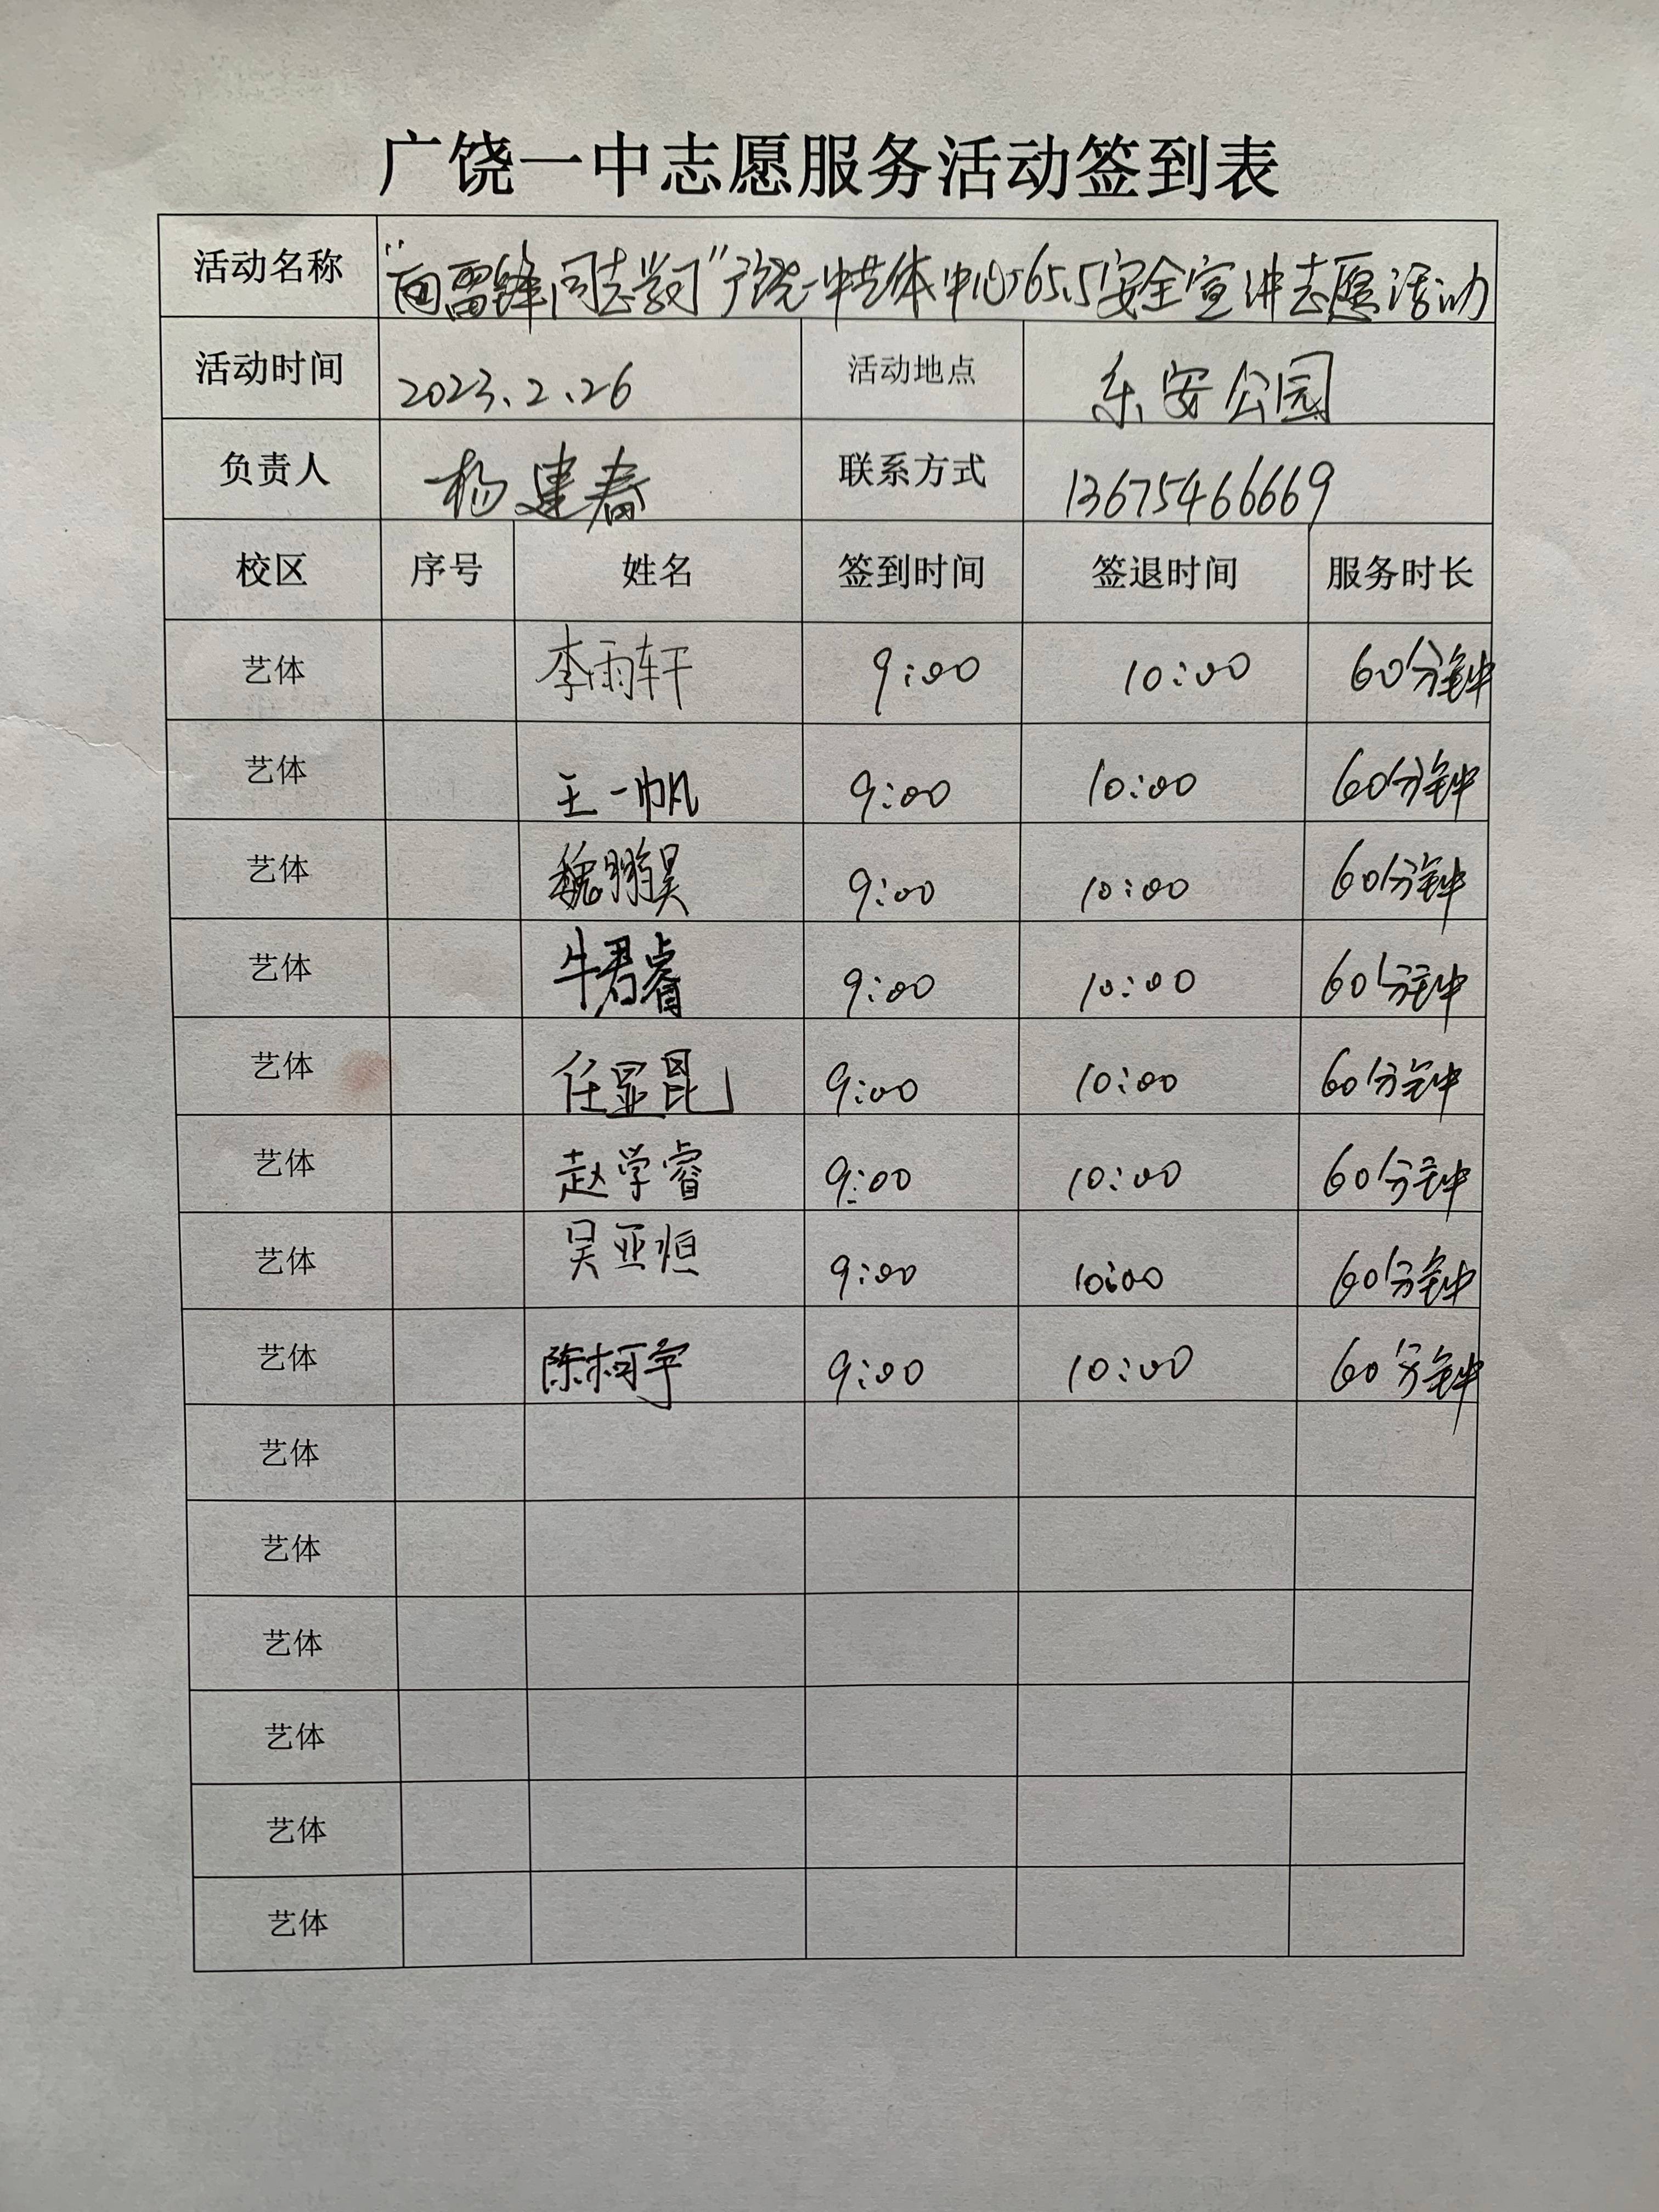 广饶一中志愿服务活动签到表
活动名称 "向雷锋同志学习"广饶一中艺体中心765.5安全宣讲志愿活动
活动时间 2023.2.26 活动地点 乐安公园
负责人 杨建春 联系方式 13675466669
校区 序号 姓名 签到时间 签退时间 服务时长
艺体 李雨轩 9:00 10:00 60分钟
艺体 王一帆 9:00 10:00 60分钟
艺体 魏鹏昊 9:00 10:00 60分钟
艺体 牛君睿 9:00 10:00 60分钟
艺体 任显昆 9:00 10:00 60分钟
艺体 赵学睿 9:00 10:00 60分钟
艺体 吴亚恒 9:00 10:00 60分钟
艺体 陈柯宇 9:00 10:00 60分钟
艺体
艺体
艺体
艺体
艺体
艺体